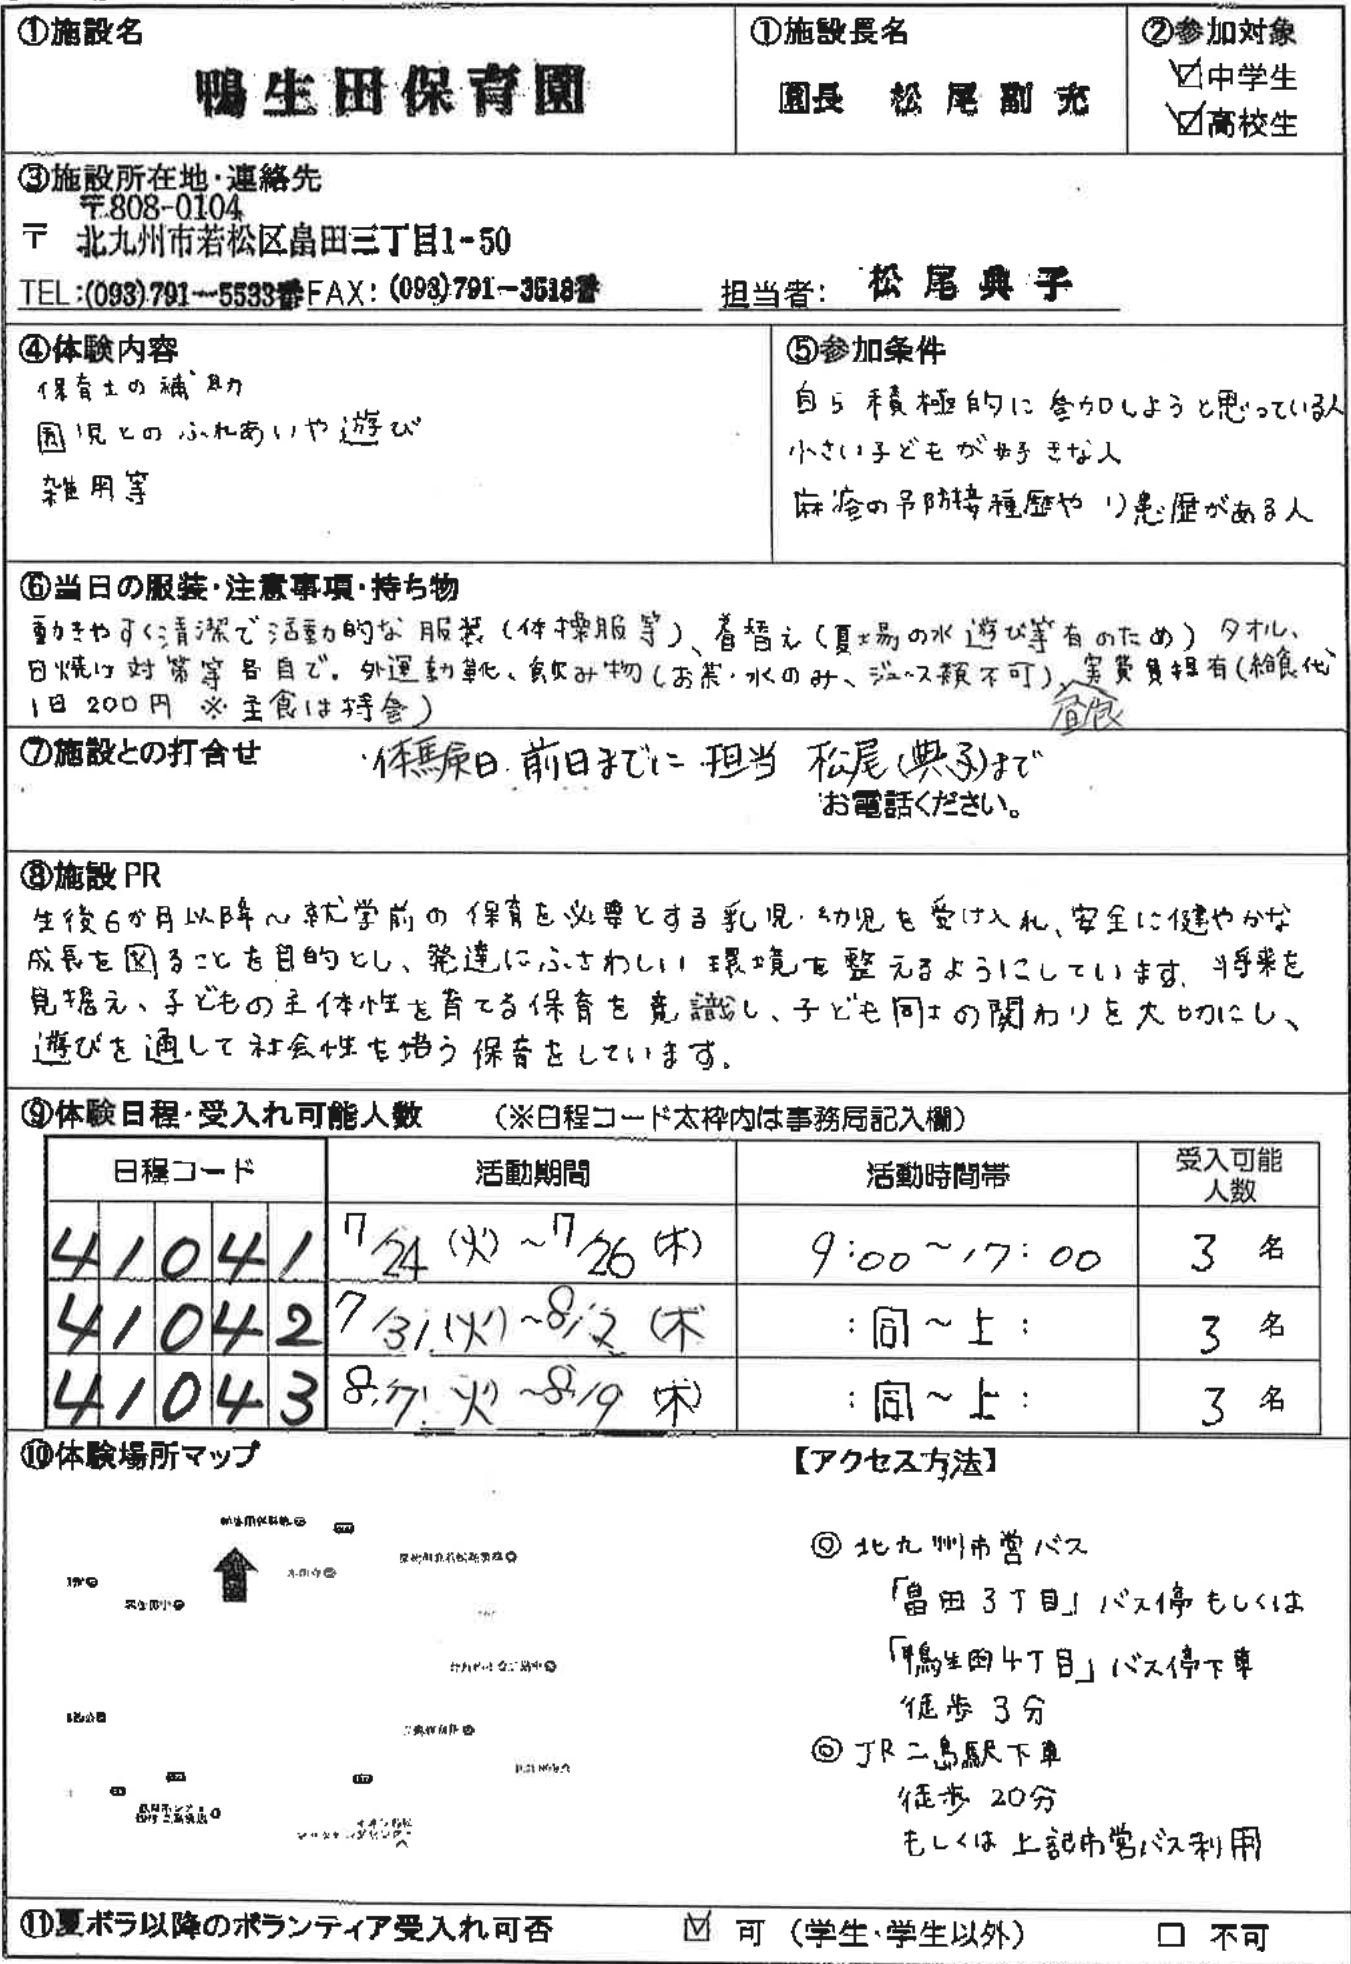 ①施設名
鴨生田保育園
①施設長名
園長 松尾副充
②参加対象
☑中学生
☑高校生
③施設所在地・連絡先
〒808-0104
〒 北九州市若松区畠田三丁目1-50
TEL:(093)791-5533番 FAX:(093)791-3518番 担当者: 松尾典子
④体験内容
保育士の補助
園児とのふれあいや遊び
雑用等
⑤参加条件
自ら積極的に参加しようと思っている人
小さい子どもが好きな人
麻疹の予防接種歴やり患歴がある人
⑥当日の服装・注意事項・持ち物
動きやすく清潔で活動的な服装(体操服等)、着替え(夏場の水遊び等有のため) タオル、
日焼け対策等各自で。外運動靴、飲み物(お茶・水のみ、ジュース類不可)、実費負担有(給食代
昼食
1日200円 ※主食は持参)
⑦施設との打合せ
体験日前日までに担当 松尾(典子)まで
お電話ください。
⑧施設PR
生後6か月以降~就学前の保育を必要とする乳児・幼児を受け入れ、安全に健やかな
成長を図ることを目的とし、発達にふさわしい環境を整えるようにしています。将来を
見据え、子どもの主体性を育てる保育を意識し、子ども同士の関わりを大切にし、
遊びを通して社会性を培う保育をしています。
⑨体験日程・受入れ可能人数 (※日程コード太枠内は事務局記入欄)
日程コード 活動期間 活動時間帯 受入可能人数
41041 7/24(火)~7/26(木) 9:00~17:00 3名
41042 7/31(火)~8/2(木 :同~上: 3名
41043 8/7(火)~8/9(木) :同~上: 3名
⑩体験場所マップ
【アクセス方法】
◎北九州市営バス
「畠田3丁目」バス停もしくは
「鴨生田4丁目」バス停下車
徒歩3分
◎JR二島駅下車
徒歩20分
もしくは上記市営バス利用
⑪夏ボラ以降のボランティア受入れ可否 ☑ 可 (学生・学生以外) □ 不可